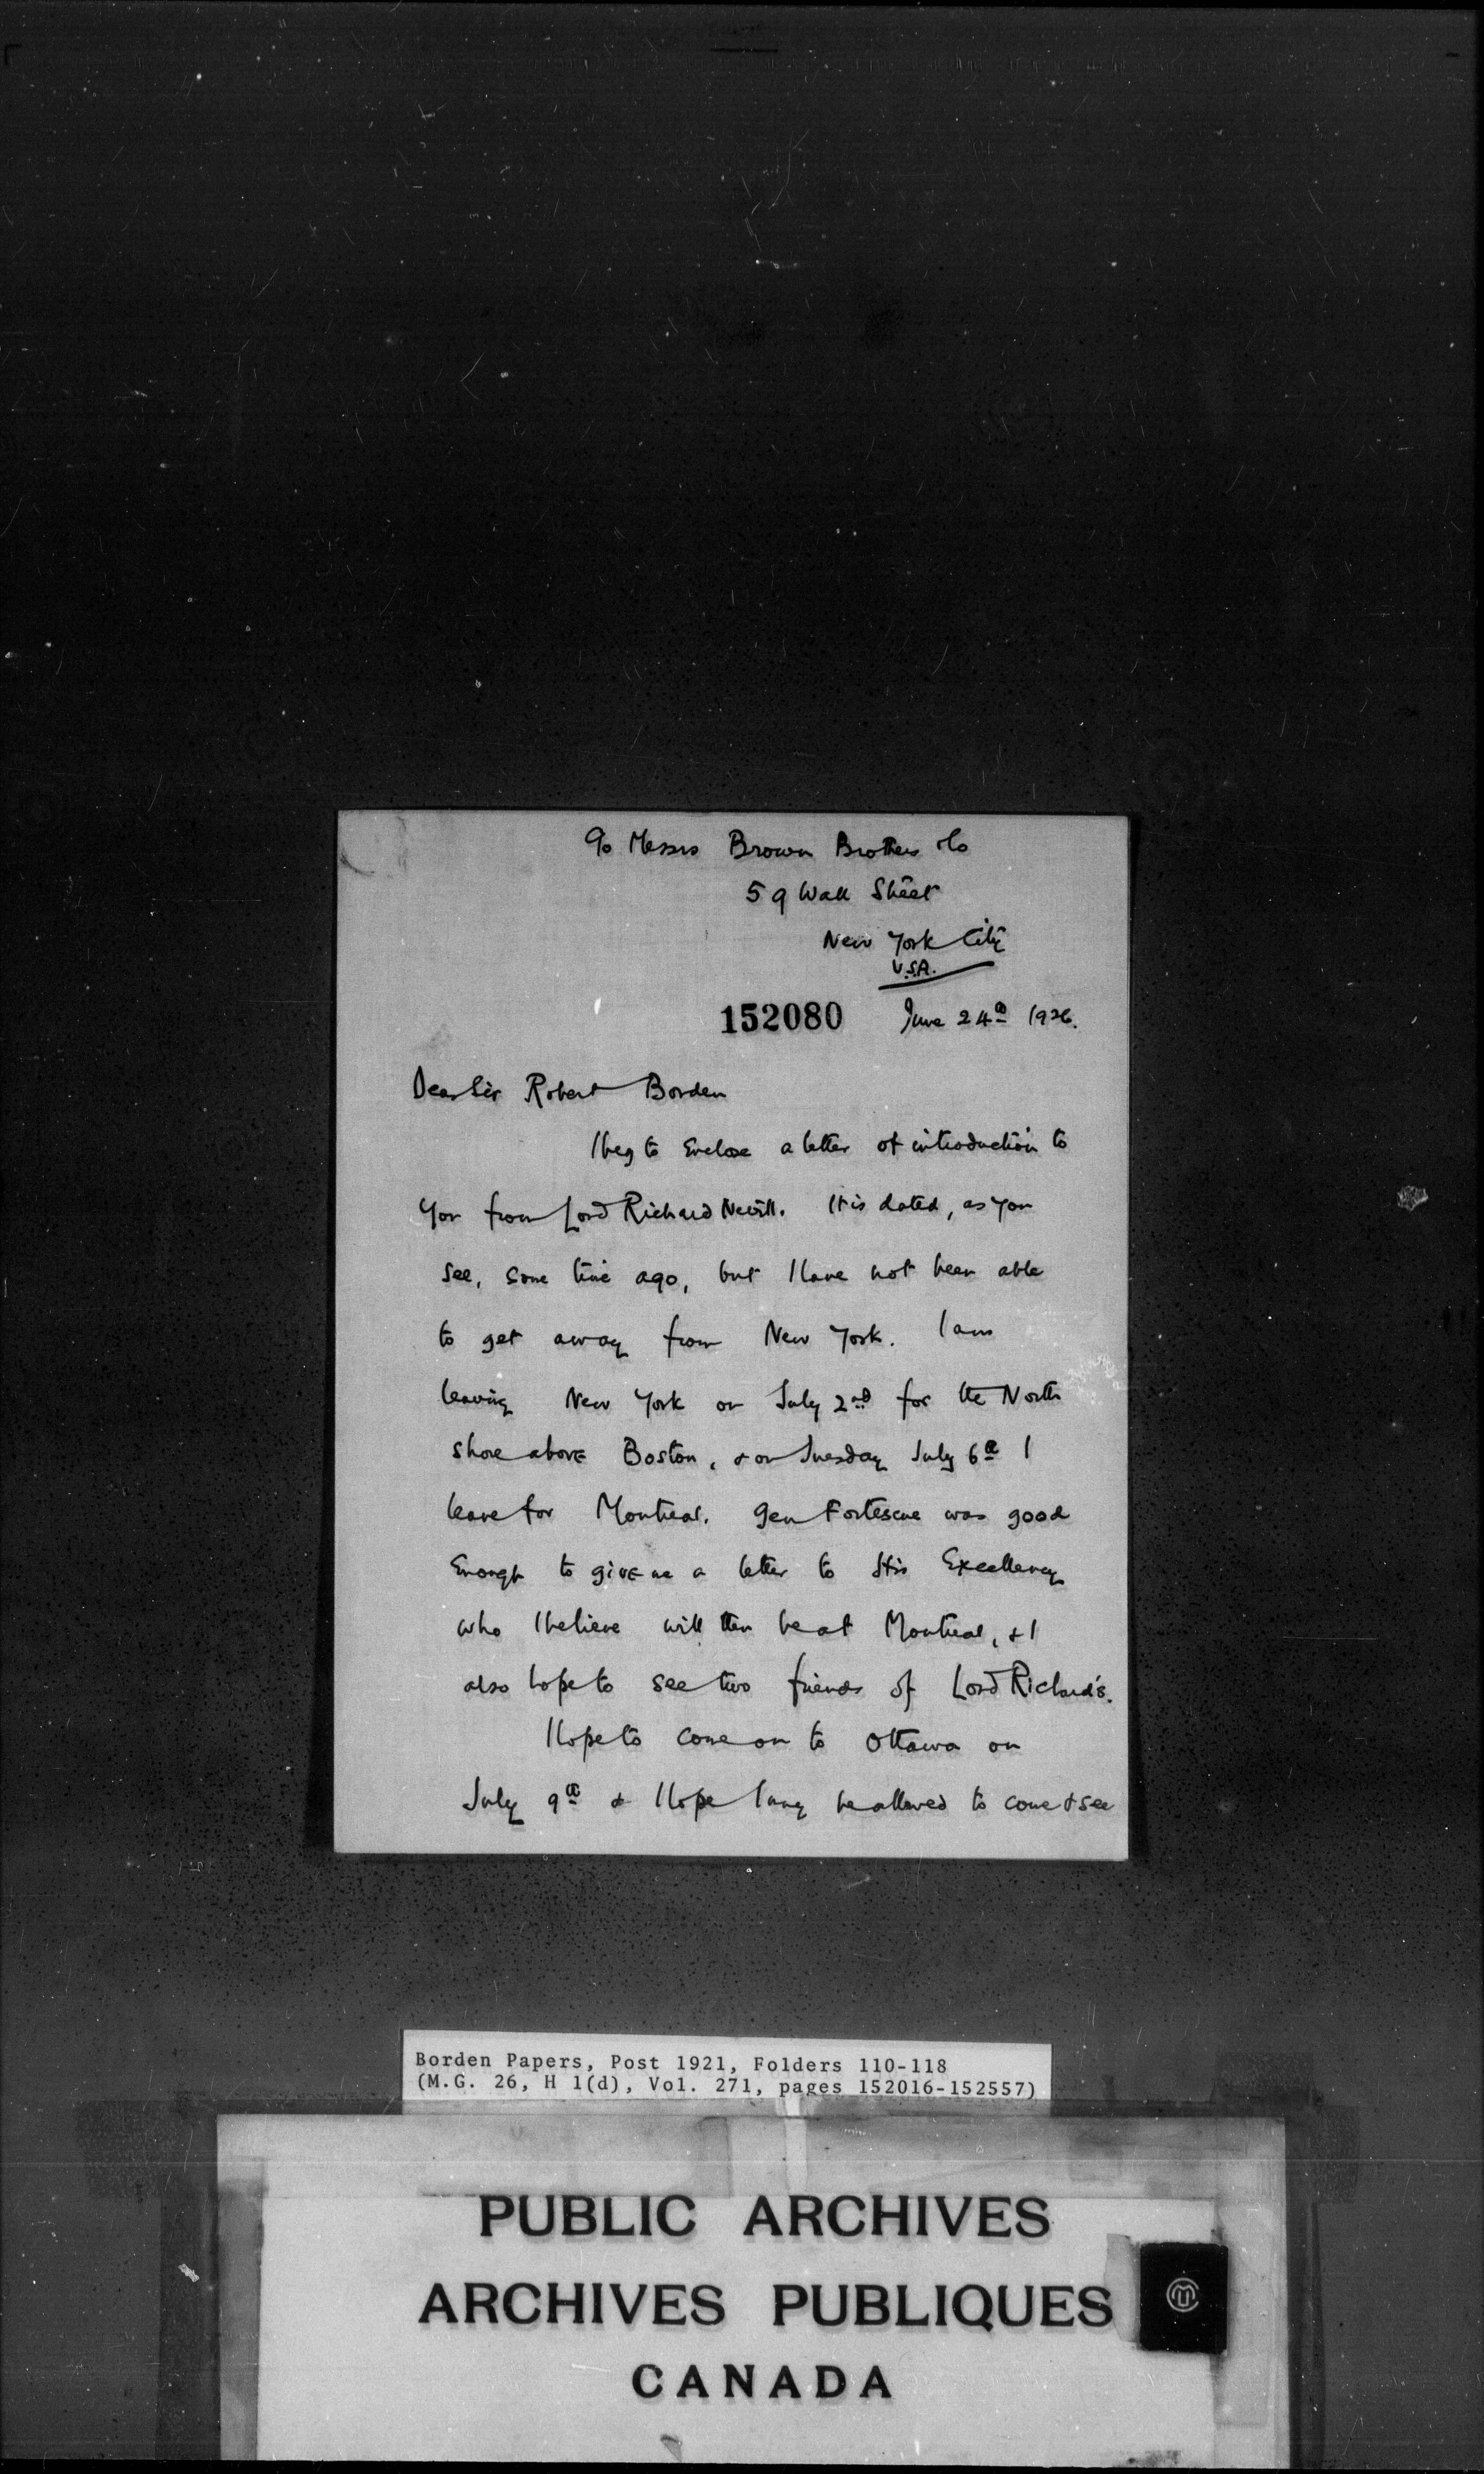 c/o Messrs Brown Brothers & Co
59 Wall Street
New York City
U.S.A.
152080 June 24th 1926.
Dear Sir Robert Borden
I beg to enclose a letter of introduction to
you from Lord Richard Nevill. It is dated, as you
see, some time ago, but I have not been able
to get away from New York. I am
leaving New York on July 2nd for the North
shore above Boston, & on Tuesday July 6th I
leave for Montreal. Gen Fortescue was good
enough to give me a letter to His Excellency
who I believe will then be at Montreal, & I
also hope to see two friends of Lord Richard's.
I hope to come on to Ottawa on
July 9th & I hope I may be allowed to come & see
Borden Papers, Post 1921, Folders 110-118
(M.G. 26, H 1(d), Vol. 271, pages 152016-152557)
PUBLIC ARCHIVES
ARCHIVES PUBLIQUES
CANADA